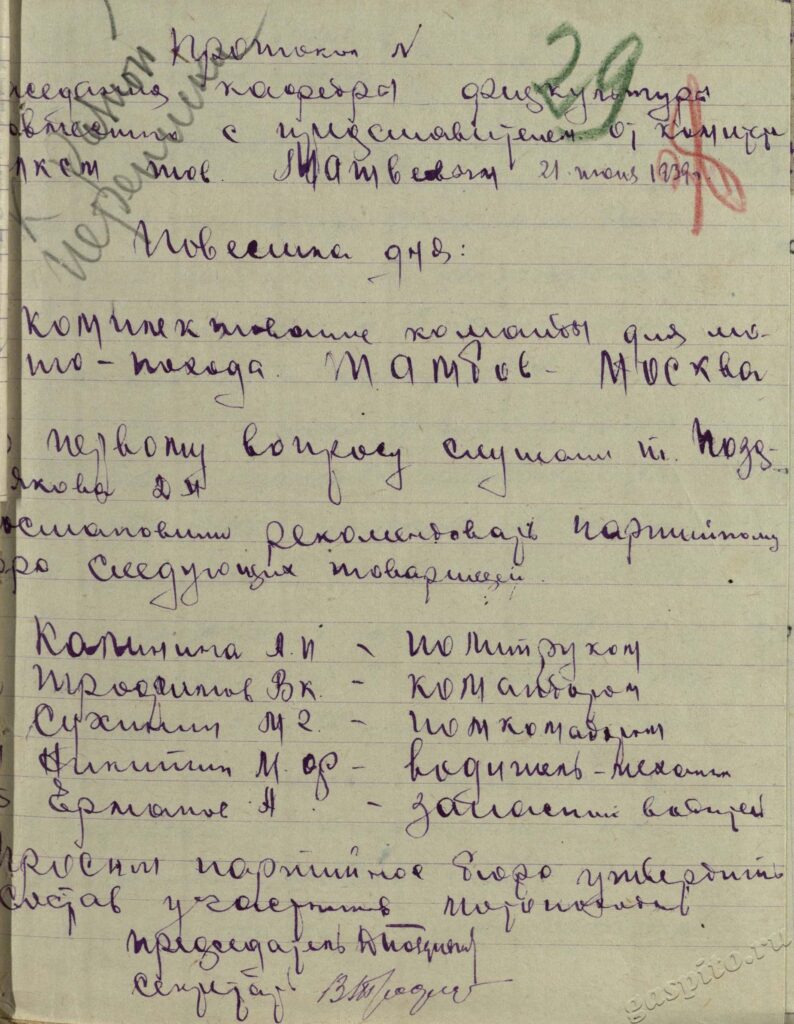 Протокол N
29
седания кафедры физкультуры
с представителем от комитета
ЛКСМ тов. Матвеевым 21 июня 1939 г.
Повестка дня:
Комплектование команды для мо-
то-похода. Тамбов - Москва
первому вопросу слушали т. Позд-
някова Д П
остановили рекомендовать партийному
бюро следующих товарищей.
Калинина А.П - политруком
Трофимов В к. - командором
Сухинин М г. - помкомандором
Никитин М. Ф - водитель-механик
Ермаков А. - запасной водитель
Просим партийное бюро утвердить
состав участников мотопохода
председатель
секретарь
gaspito.ru